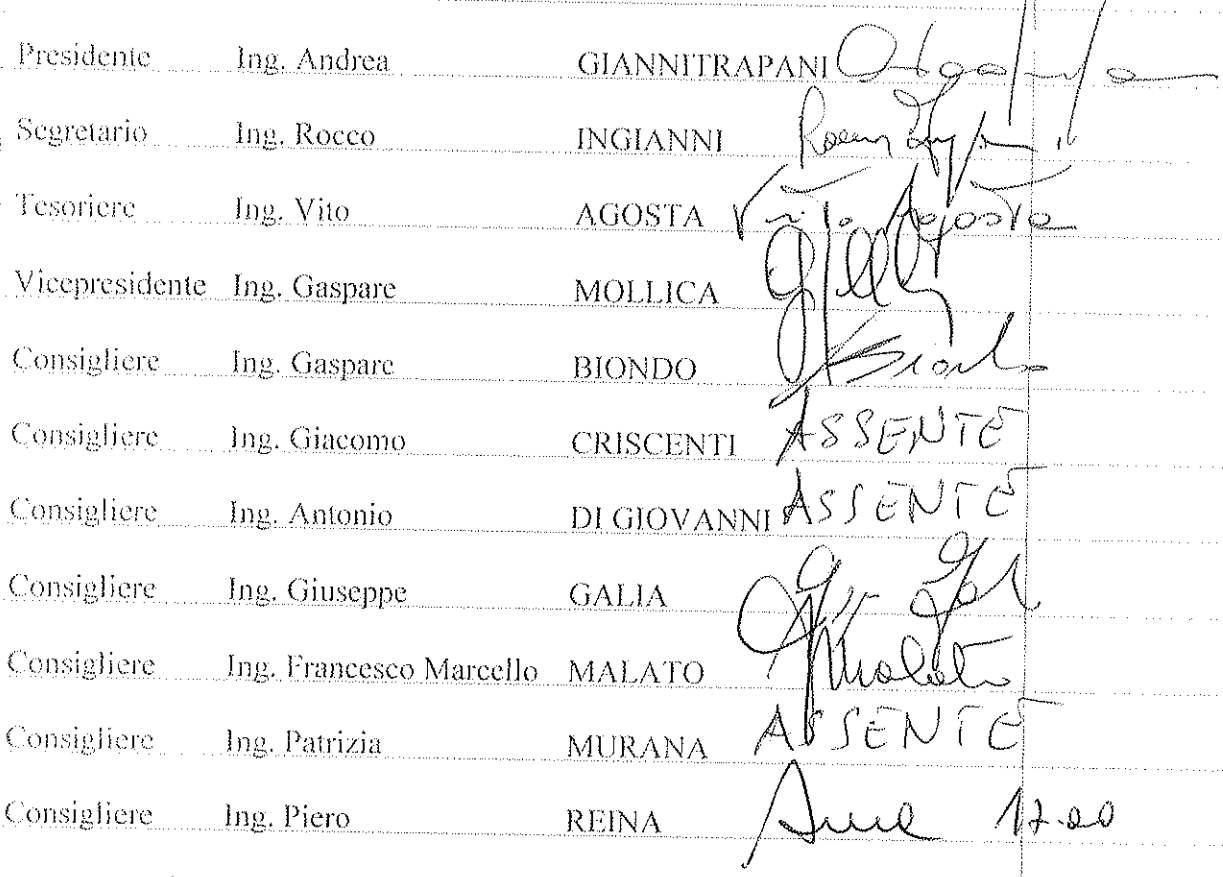 Presidente Ing. Andrea GIANNITRAPANI
Segretario Ing. Rocco INGIANNI
Tesoriere Ing. Vito AGOSTA Vito Agosta
Vicepresidente Ing. Gaspare MOLLICA
Consigliere Ing. Gaspare BIONDO Biondo
Consigliere Ing. Giacomo CRISCENTI ASSENTE
Consigliere Ing. Antonio DI GIOVANNI ASSENTE
Consigliere Ing. Giuseppe GALIA
Consigliere Ing. Francesco Marcello MALATO Malato
Consigliere Ing. Patrizia MURANA ASSENTE
Consigliere Ing. Piero REINA 17.00